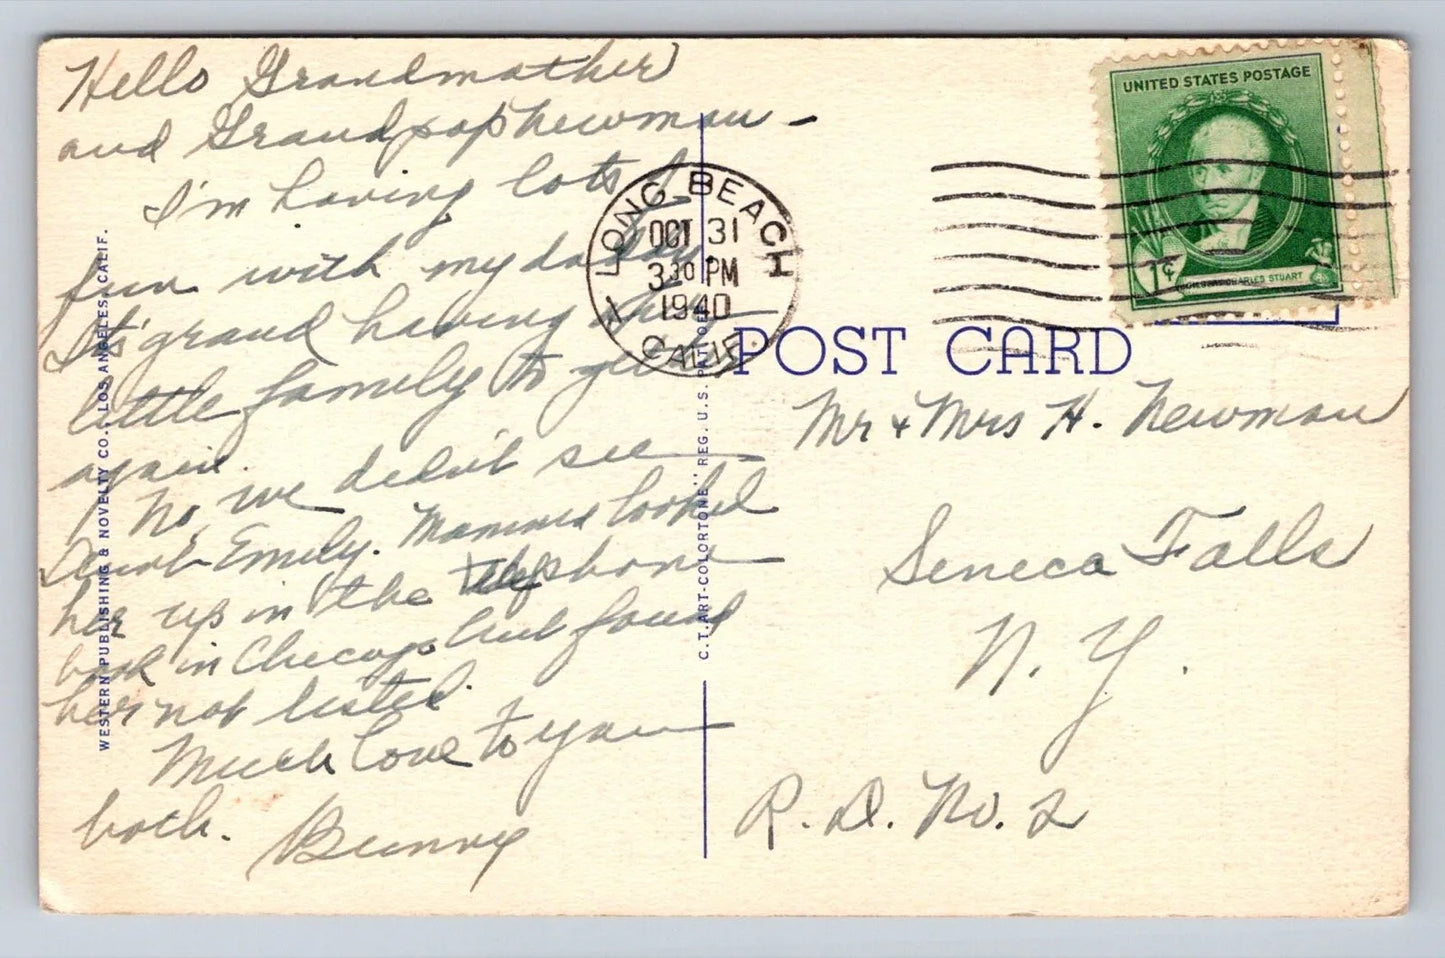 Hello Grandmother
and Grandpap Newman -
I'm having lots of
fun with my daddy.
It's grand having my
little family together
again.
No, we didn't see
Aunt Emily. Mamma looked
her up in the telephone
book in Chicago but found
her not listed.
Much love to you
both. Bunny
WESTERN PUBLISHING & NOVELTY CO. LOS ANGELES, CALIF.
C.T. ART-COLORTONE" REG. U.S. PAT. OFF.
LONG BEACH
OCT 31
3 30 PM
1940
CALIF.
1
UNITED STATES POSTAGE
1¢
GILBERT CHARLES STUART
POST CARD
Mr & Mrs H. Newman
Seneca Falls
N. Y.
R. D. No. 2